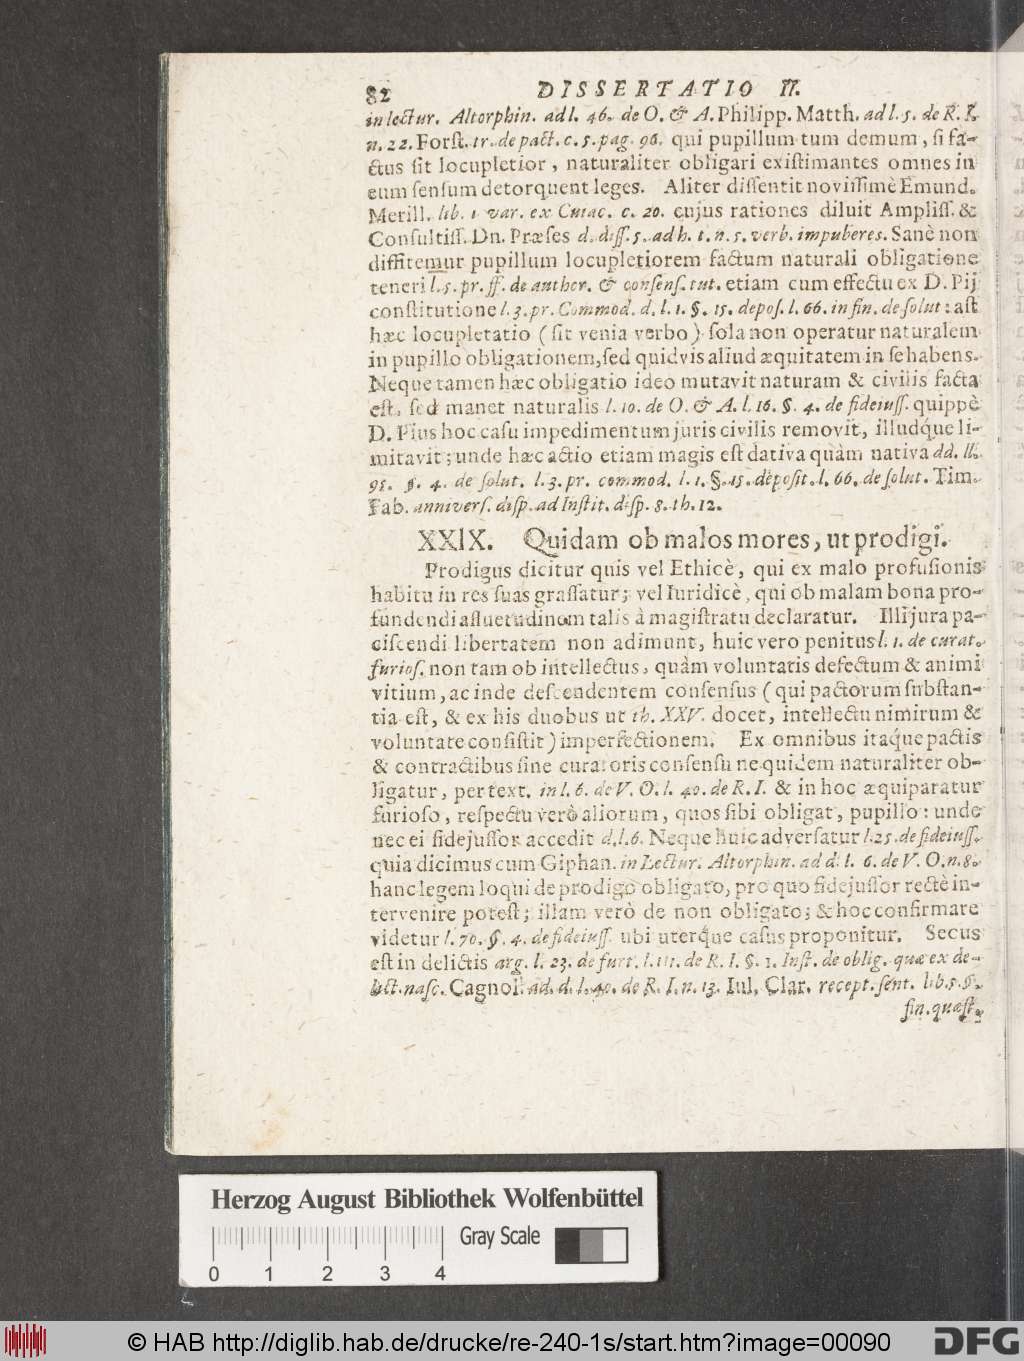 82 DISSERTATIO II.
in lectur. Altorphin. ad l. 46. de O. & A. Philipp. Matth. ad l. 5. de R. I.
n. 22. Forſt. tr. de pact. c. 5. pag. 96. qui pupillum tum demum, ſi fa-
ctus ſit locupletior, naturaliter obligari exiſtimantes omnes in
eum ſenſum detorquent leges. Aliter diſſentit noviſſimè Emund.
Merill. lib. 1 var. ex Cuiac. c. 20. cujus rationes diluit Ampliſſ. &
Conſultiſſ. Dn. Præſes d. diſſ. 5. ad h. t. n. 5. verb. impuberes. Sanè non
diffitemur pupillum locupletiorem factum naturali obligatione
teneri l. 5. pr. ff. de author. & conſenſ. tut. etiam cum effectu ex D. Pij
conſtitutione l. 3. pr. Commod. d. l. 1. §. 15. depoſ. l. 66. in fin. de ſolut: aſt
hæc locupletatio (ſit venia verbo) ſola non operatur naturalem
in pupillo obligationem, ſed quidvis aliud æquitatem in ſe habens.
Neque tamen hæc obligatio ideo mutavit naturam & civilis facta
eſt, ſed manet naturalis l. 10. de O. & A. l. 16. §. 4. de fideiuſſ. quippè
D. Pius hoc caſu impedimentum juris civilis removit, illudq́ue li-
mitavit; unde hæc actio etiam magis eſt dativa quàm nativa dd. ll.
95. §. 4. de ſolut. l. 3. pr. commod. l. 1. §. 15. depoſit. l. 66. de ſolut. Tim.
Fab. anniverſ. diſp. ad Inſtit. diſp. 8. th. 12.
XXIX. Quidam ob malos mores, ut prodigi.
Prodigus dicitur quis vel Ethicè, qui ex malo profuſionis
habitu in res ſuas graſſatur; vel Iuridicè, qui ob malam bona pro-
fundendi aſſuetudinem talis à magiſtratu declaratur. Illi jura pa-
ciſcendi libertatem non adimunt, huic vero penitus l. 1. de curat.
furioſ. non tam ob intellectus, quàm voluntatis defectum & animi
vitium, ac inde deſcendentem conſenſus (qui pactorum ſubſtan-
tia eſt, & ex his duobus ut th. XXV. docet, intellectu nimirum &
voluntate conſiſtit) imperfectionem. Ex omnibus itaq́ue pactis
& contractibus ſine curatoris conſenſu ne quidem naturaliter ob-
ligatur, per text. in l. 6. de V. O. l. 40. de R. I. & in hoc æquiparatur
furioſo, reſpectu verò aliorum, quos ſibi obligat, pupillo: unde
nec ei fidejuſſor accedit d. l. 6. Neque huic adverſatur l. 25. de fideiuſſ.
quia dicimus cum Giphan. in Lectur. Altorphin. ad d. l. 6. de V. O. n. 8.
hanc legem loqui de prodigo obligato, pro quo fidejuſſor rectè in-
tervenire poteſt; illam verò de non obligato; & hoc confirmare
videtur l. 70. §. 4. de fideiuſſ. ubi uterq́ue caſus proponitur. Secus
eſt in delictis arg. l. 23. de furt. l. 111. de R. I. §. 1. Inſt. de oblig. quæ ex de-
lict. naſc. Cagnol. ad. d. l. 40. de R. I. n. 13. Iul. Clar. recept. ſent. lib. 5. §.
fin. quæſt.
Herzog August Bibliothek Wolfenbüttel
Gray Scale
0 1 2 3 4
© HAB http://diglib.hab.de/drucke/re-240-1s/start.htm?image=00090
DFG